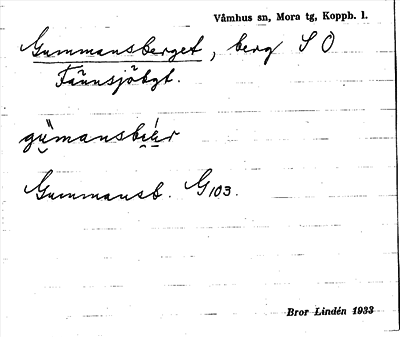 Våmhus sn, Mora tg, Kopph. l.
Gummansberget, berg SO
Tännsjöbgt.
gummansbär
Gummansb. G103.
Bror Lindén 1933